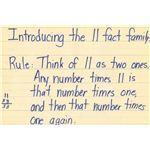 Introducing the 11 fact family
Rule: Think of 11 as two ones.
Any number times 11 is
that number times one,
and then that number times
one again.